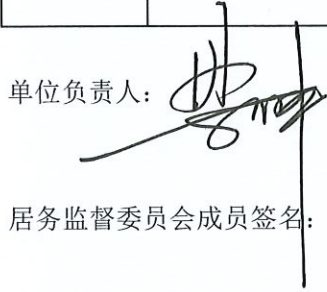 单位负责人：
居务监督委员会成员签名：